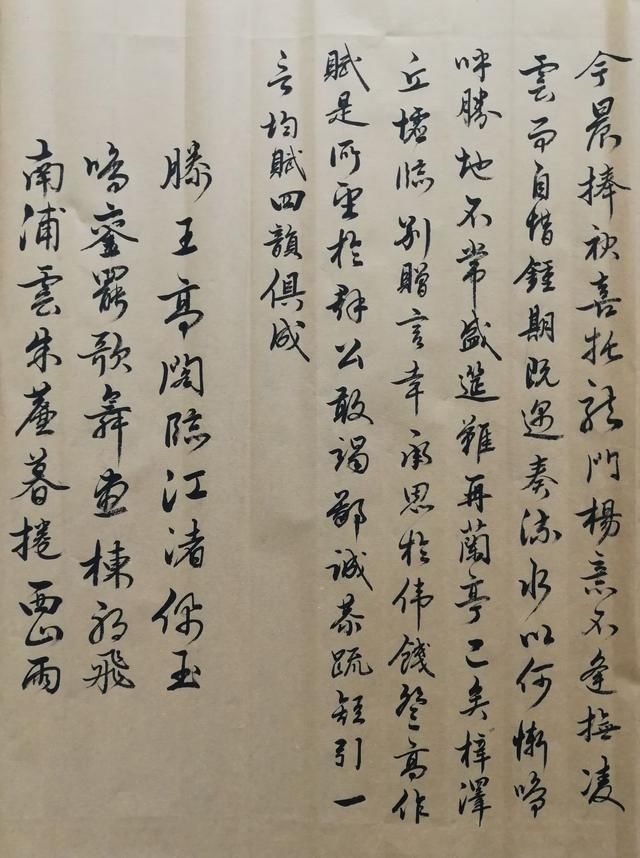 今晨捧袂喜托龍門楊意不逢撫凌
雲而自惜鍾期既遇奏流水以何慚嗚
呼勝地不常盛筵難再蘭亭已矣梓澤
丘墟臨別贈言幸承恩於偉餞登高作
賦是所望於群公敢竭鄙誠恭疏短引一
言均賦四韻俱成
滕王高閣臨江渚佩玉
鳴鑾罷歌舞畫棟朝飛
南浦雲朱簾暮捲西山雨